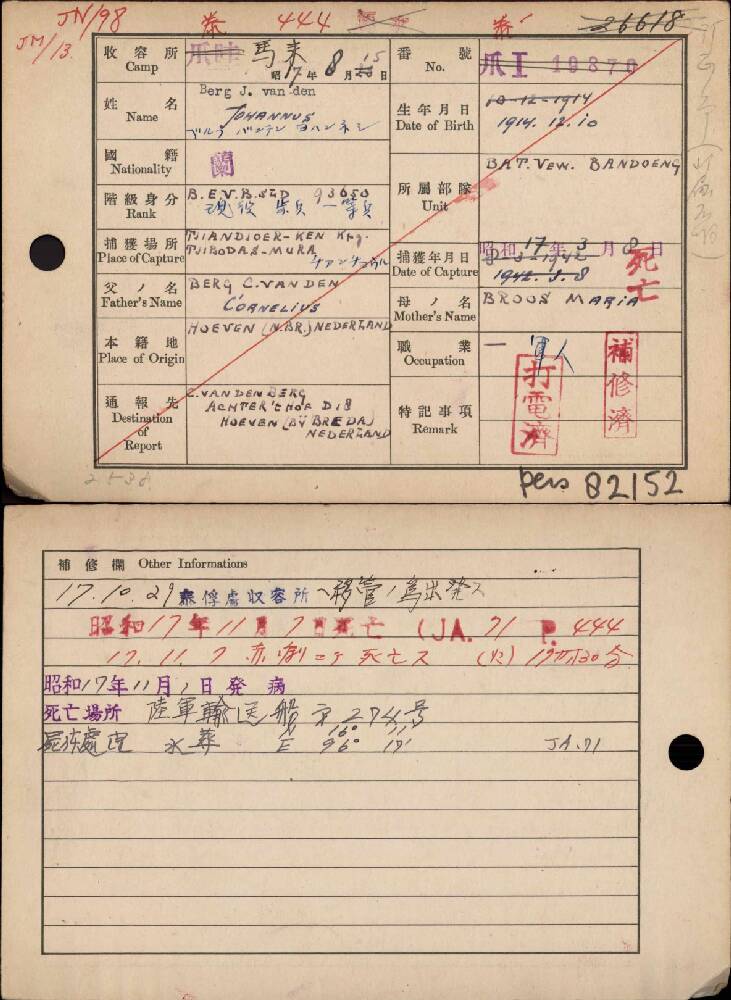 JN/98 泰 444 泰 26618
JM/13.
收容所 Camp 爪哇 馬来 昭17年8月15日
番號 No. 爪I 19870
姓名 Name Berg J. van den
JOHANNUS
生年月日 Date of Birth 10-12-1914
1914. 12. 10
國籍 Nationality 蘭
階級身分 Rank B.E.V.B. STD 93650
現役 一等兵
所屬部隊 Unit BAT. VEW. BANDOENG
捕獲場所 Place of Capture TJIANDJOER-KEN Krg.
TJIBODAS-MURA
捕獲年月日 Date of Capture 昭和17年3月8日
8-3-1942
1942. 3. 8
死亡
父ノ名 Father's Name BERG C. VAN DEN
CORNELIUS
母ノ名 Mother's Name BROOS MARIA
本籍地 Place of Origin HOEVEN (N.BR.) NEDERLAND
職業 Occupation 軍人
通報先 Destination of Report C. VAN DEN BERG
ACHTER 'T HOF D18
HOEVEN (BY BREDA)
NEDERLAND
特記事項 Remark 打電濟 補修濟
pers 82152
補修欄 Other Informations
17.10.29 泰俘虜収容所へ移管ノ為出発ス
昭和17年11月7日死亡 (JA. 71 P. 444
17. 11. 7 赤痢ニテ死亡ス
昭和17年11月1日発病
死亡場所 陸軍輸送船第294号
屍体處理 水葬 N 16° 11'
E 96° 17' JA.71